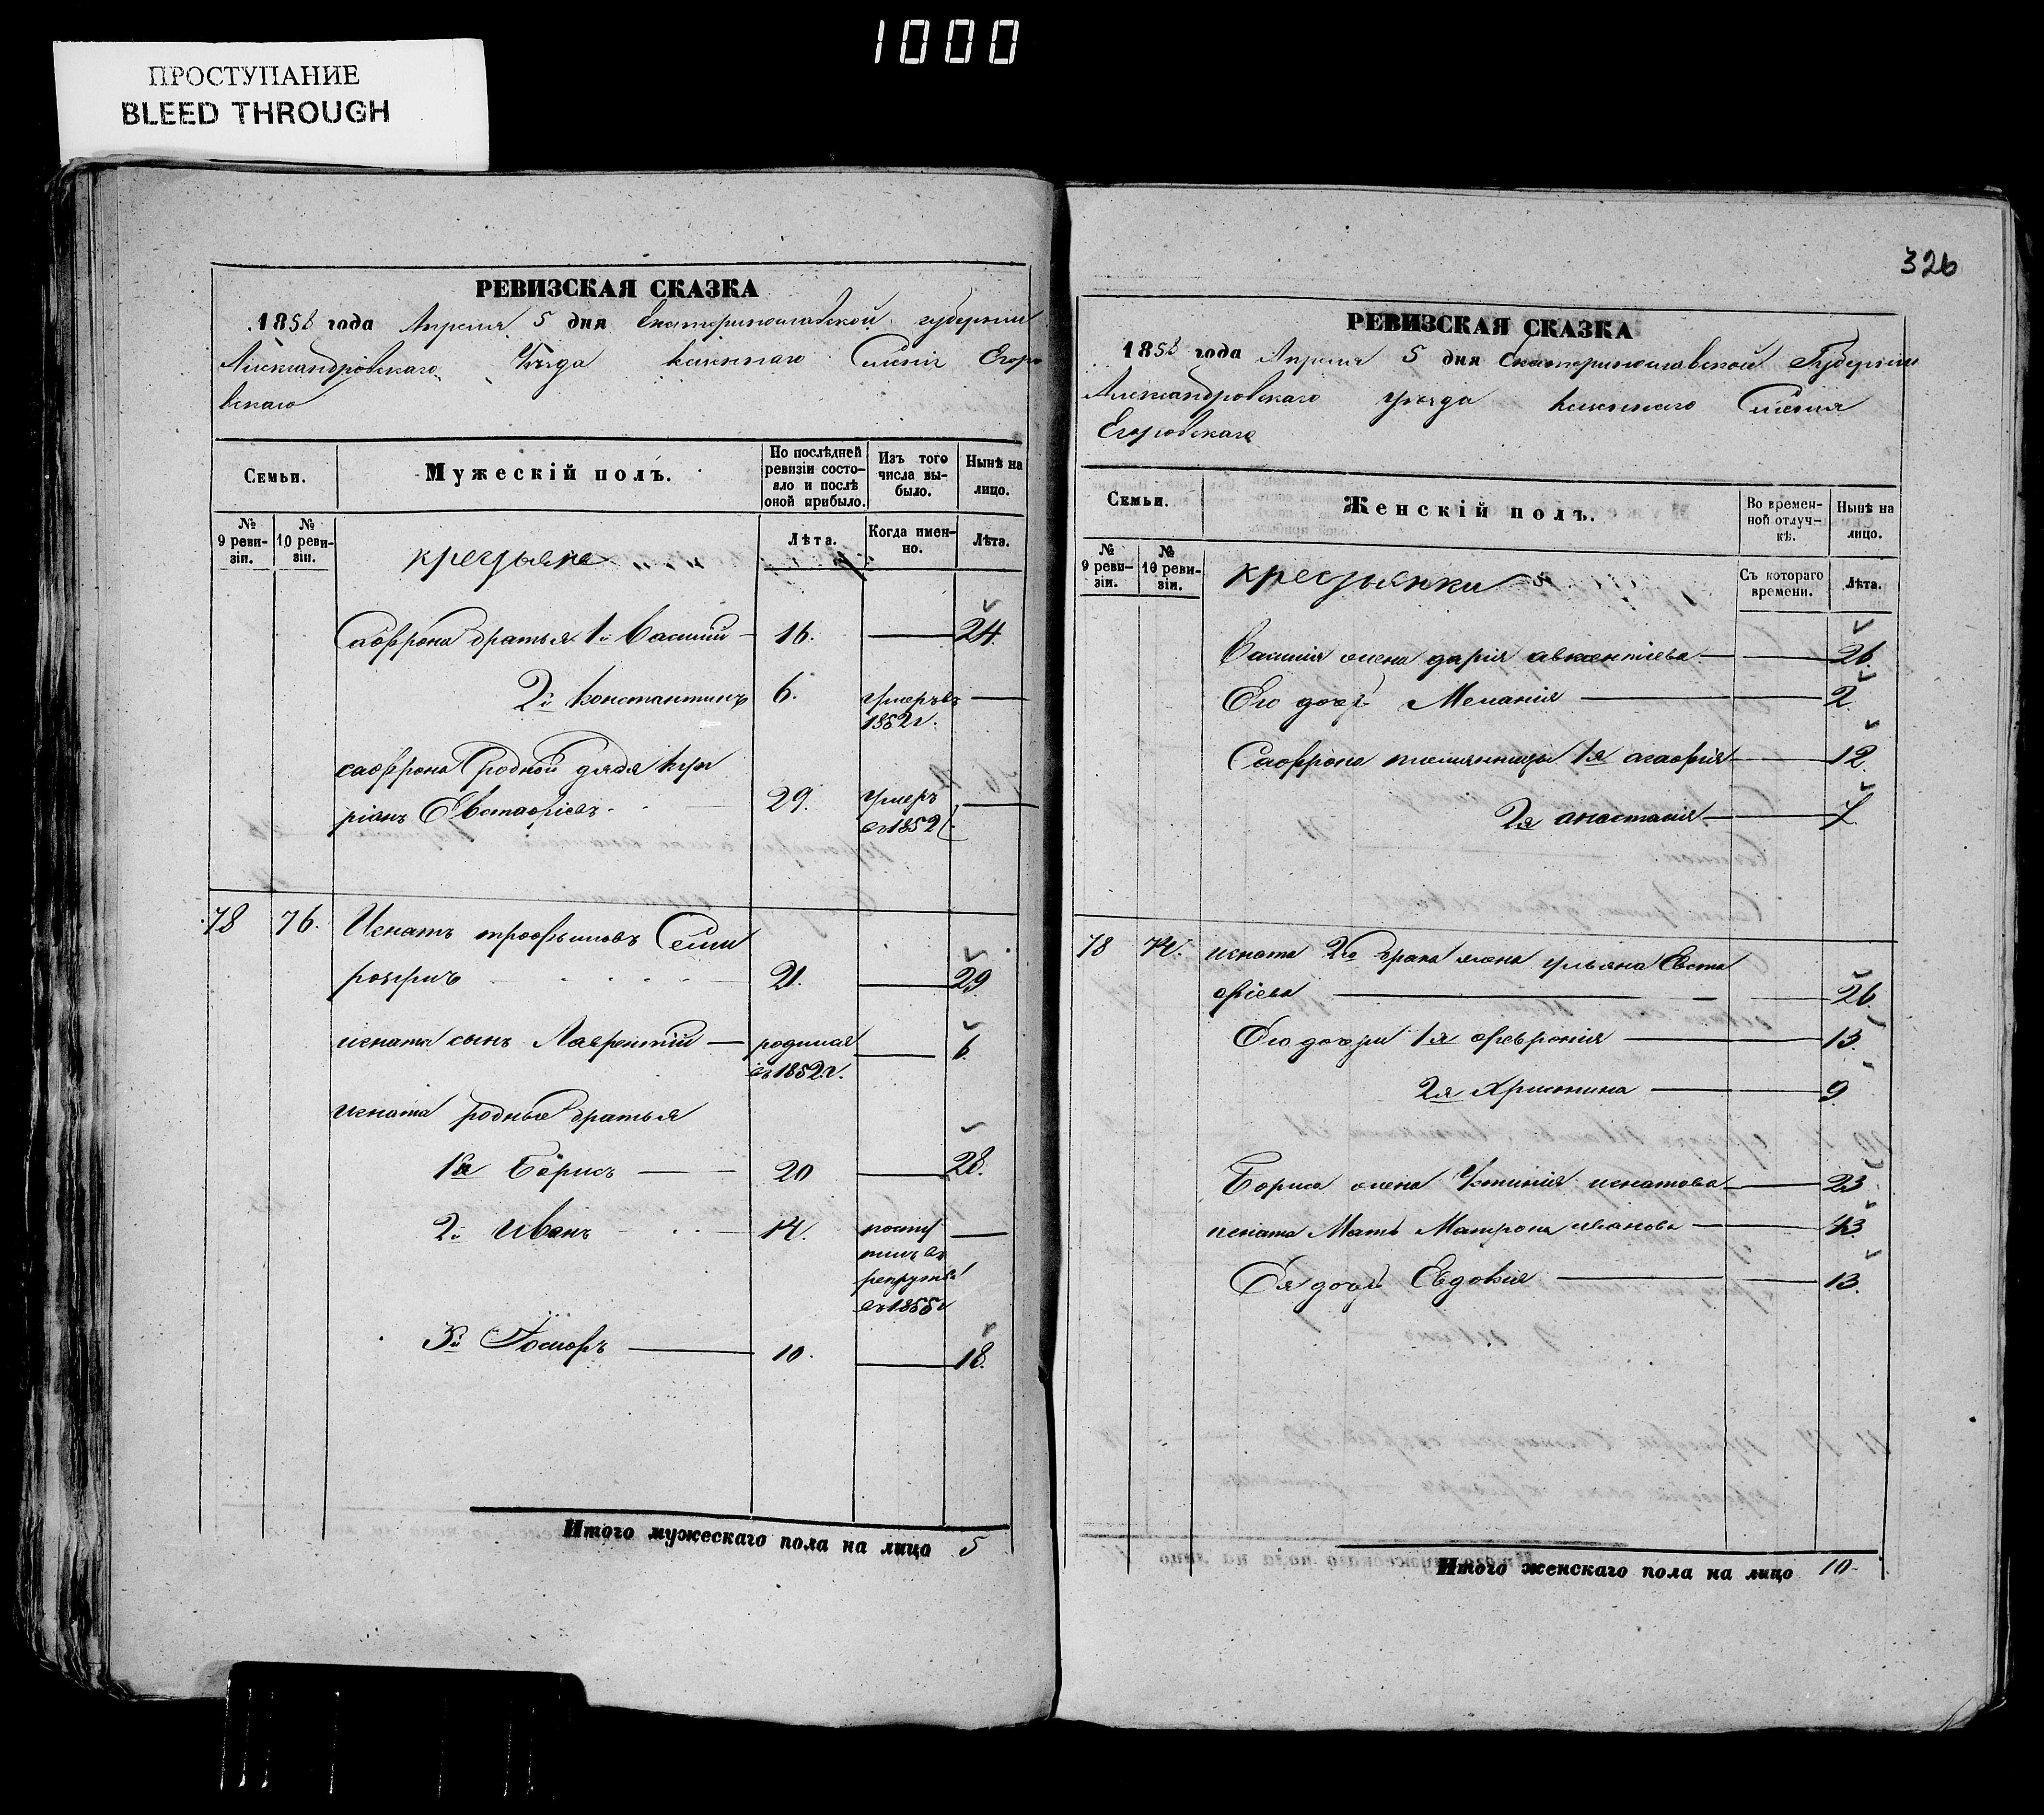 1000
ПРОСТУПАНИЕ
BLEED THROUGH
РЕВИЗСКАЯ СКАЗКА
1858 года Апреля 5 дня Екатеринославской губернии
Александровскаго Уезда казеннаго Селенія Егоро
вскаго
Семьи.
Мужескій полъ.
По послѣдней ревизіи состо-
яло и послѣ оной прибыло.
Изъ того числа вы-
было.
Нынѣ на лицо.
№ 9 реви-
зіи.
№ 10 реви-
зіи.
крестьяне
Лѣта.
Когда имен-
но.
Лѣта.
Сафрона братья 1й Василий 16. 24.
2й Константинъ 6. умеръ въ
1852 г.
сафрона родной дядя Кип
ріянъ Евстафіевъ 29. умеръ
въ 1852
78 76. Игнатъ трофимовъ Семи
21. 29.
игната сынъ Лаврентій родился 6.
въ 1852 г.
игната родные братья
1й Борисъ 20 28.
2й Иванъ 14. посту
пилъ въ
рекруты
въ 1855 г
3й Іосифъ 10. 18.
Итого мужескаго пола на лицо 5
326
РЕВИЗСКАЯ СКАЗКА
1858 года Апреля 5 дня Екатеринославской Губерніи
Александровскаго уезда казеннаго Селенія
Егоровскаго
Семьи.
Женскій полъ.
Во времен-
ной отлуч-
кѣ.
Нынѣ на лицо.
№ 9 реви-
зіи.
№ 10 реви-
зіи.
крестьянки
Съ котораго времени.
Лѣта.
Василия жена дарія авксентіева 26.
Его дочь Меланія 2
Сафрона племянницы 1я агафія 12
2я анастасія 7
78 игната 2го брака жена ульяна Евста
фіева 26.
Его дочери 1я февронія 13.
2я Христина 9
Бориса жена Устинія игнатова 23
игната Мать Матрона иванова 43
Ея дочь Евдокия 13.
Итого женскаго пола на лицо 10